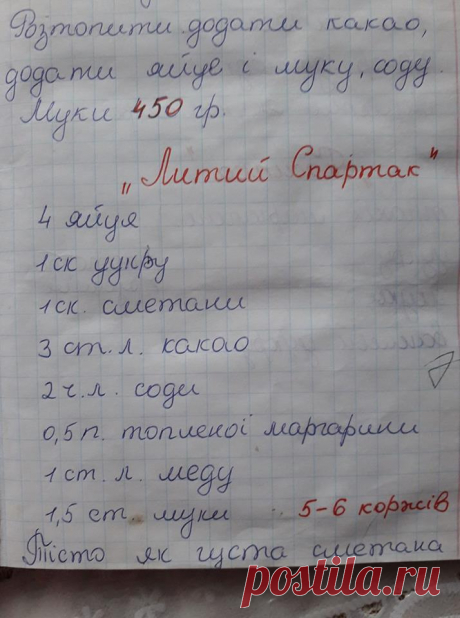 Розтопити додати какао,
додати яйце і муку, соду.
Муки 450 гр.
"Литий Спартак"
4 яйця
1 ск цукру
1 ск. сметани
3 ст. л. какао
2 ч. л. соди
0,5 п. топленої маргарини
1 ст. л. меду
1,5 ст. муки 5-6 коржів
Тісто як густа сметана
postila.ru